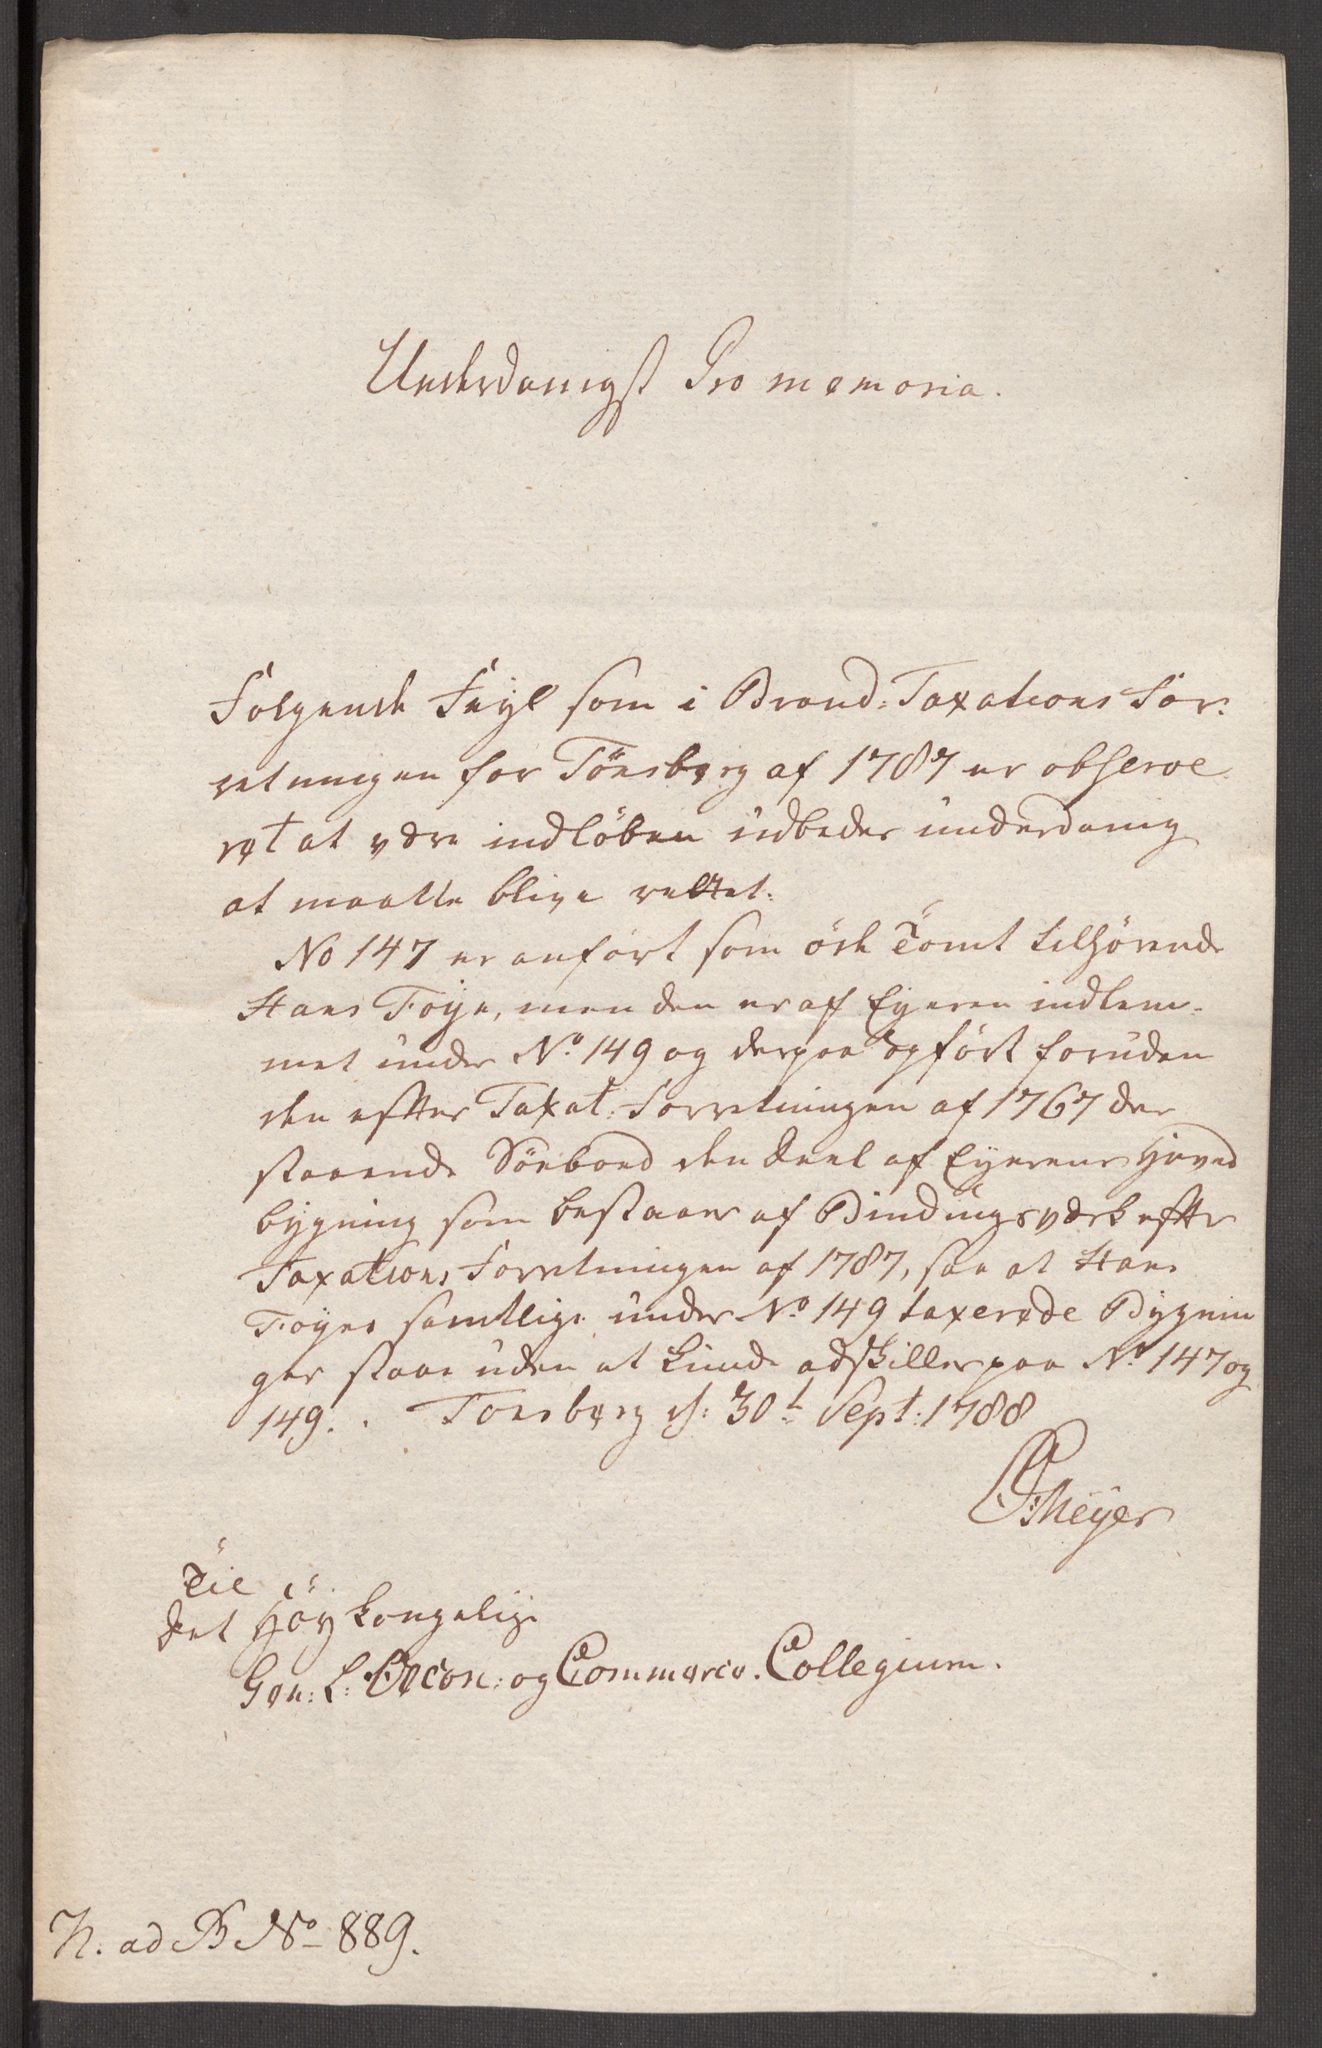 Underdanigst Pro memoria.
Følgende Feyl som i Brand-Taxations For-
retningen for Tönsberg af 1787 er observe-
ret at være indlöben udbedes underdanig
at maatte blive rettet.
No 147 er anfört som öde Tomt tilhörende
Hans Foyn, men den er af Eyeren indlem-
met under No. 149 og derpaa opfört foruden
den efter Taxat: Forretningen af 1767 der
staaende Söeboed den Deel af Eyerens Hoved
bygning som bestaaer af Bindingsværk efter
Taxations Forretningen af 1787, saa at Hans
Foyns samtlige under No. 149 taxerede Bygnin
ger staae uden at kunde adskilles paa No. 147 og
149. Tonsberg d: 30t Sept: 1788
Meyer
Til
Det Höy kongelig
Gen: L: Oecon: og Commerce-Collegium.
N. ad B No 889.